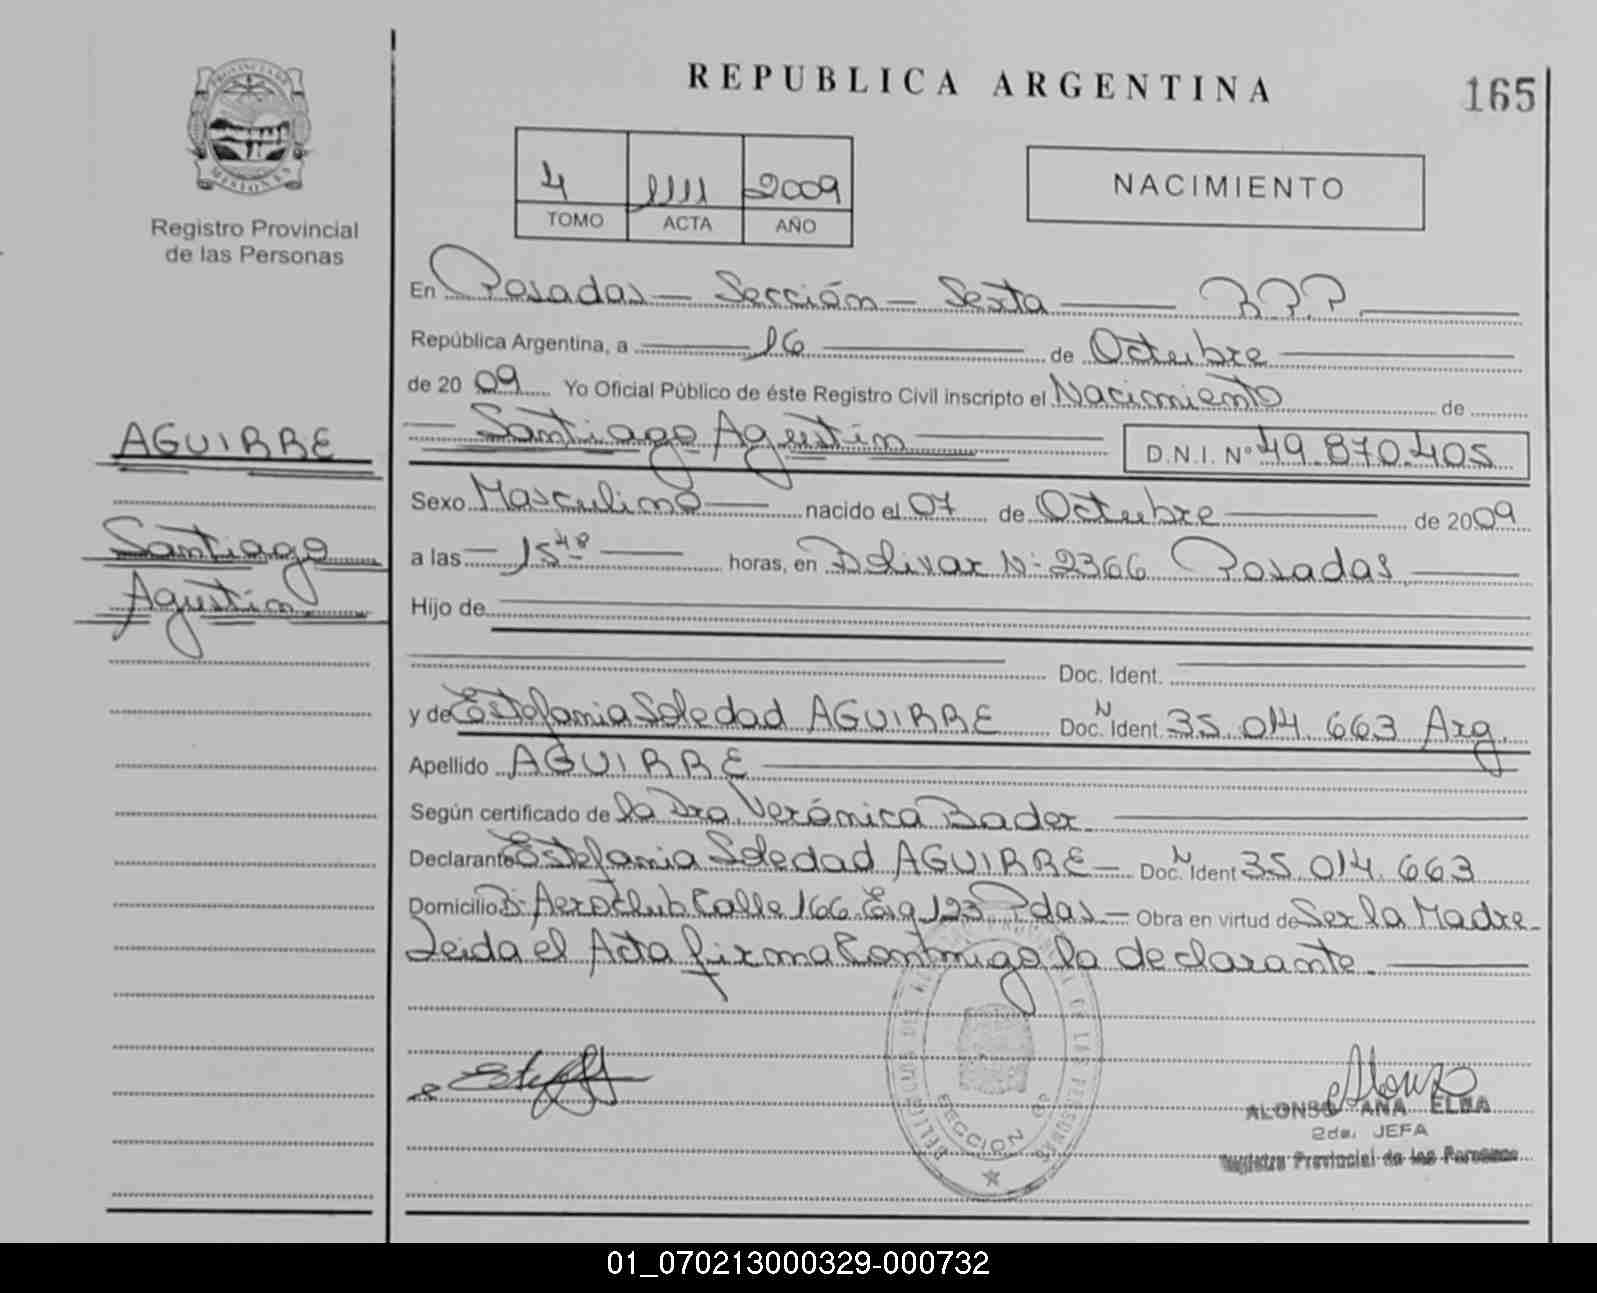 REPUBLICA ARGENTINA
165
PROVINCIA DE
MISIONES
Registro Provincial
de las Personas
4 1111 2009
TOMO ACTA AÑO
NACIMIENTO
En Posadas - Sección - Sexta R.P.P.
República Argentina, a 16 de Octubre
de 2009 Yo Oficial Público de éste Registro Civil inscripto el Nacimiento de
Santiago Agustín D.N.I. Nº 49.870.405
AGUIRRE
Santiago
Agustín
Sexo Masculino nacido el 07 de Octubre de 2009
a las 15 48 horas, en Bolivar Nº 2366 Posadas
Hijo de
Doc. Ident.
y de Estefania Soledad AGUIRRE Doc. N Ident. 35.014.663 Arg.
Apellido AGUIRRE
Según certificado de la Dra. Verónica Bader
Declarante Estefania Soledad AGUIRRE - Doc. N Ident 35.014.663
Domicilio Bº Aeroclub Calle 166 Esq 123 Pdas - Obra en virtud de Ser la Madre
Leida el Acta firma Conmigo la declarante.
SECCION 6ª
ALONSO ANA ELBA
2da. JEFA
Registro Provincial de las Personas
01_070213000329-000732